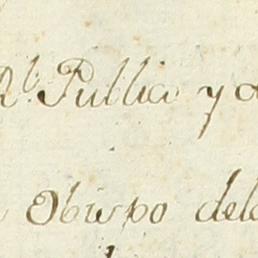 Rl. Pullia y
Obispo dela